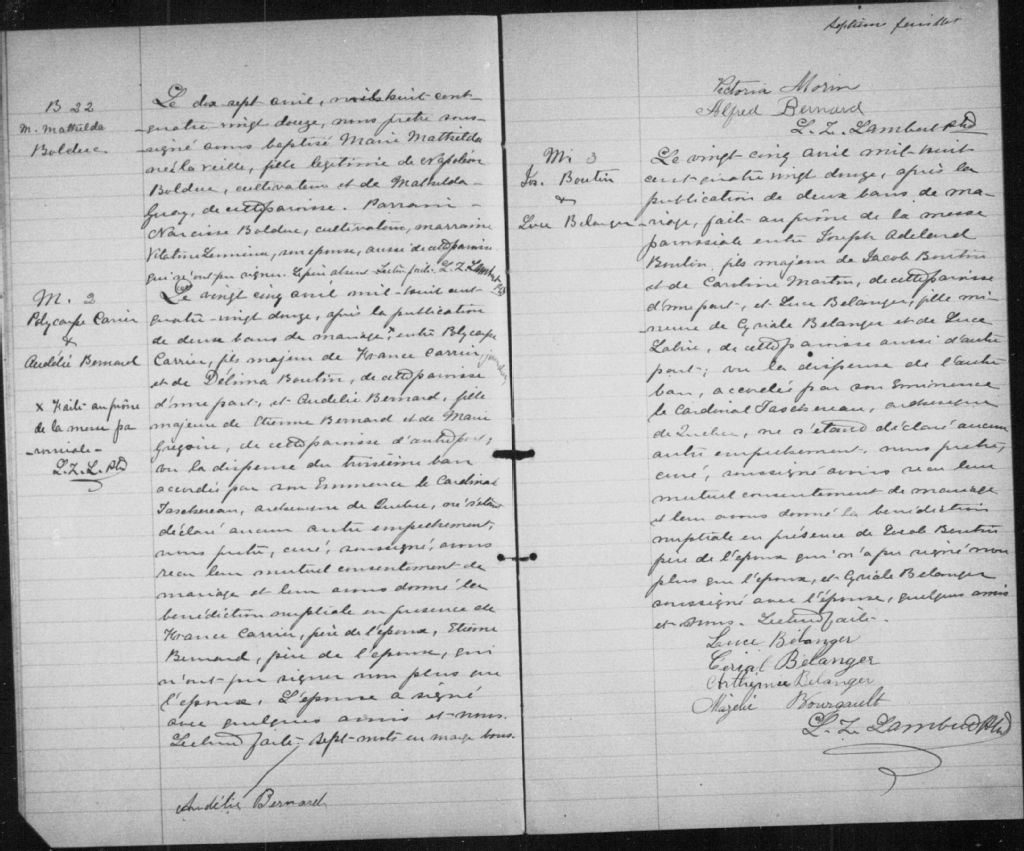 B 22
M. Mathilda
Bolduc
Le dix sept avril, mil huit cent
quatre vingt douze, nous prêtre sous-
signé avons baptisé Marie Mathilda
née la veille, fille légitime de Napoléon
Bolduc, cultivateur et de Mathilda
Guay, de cette paroisse. Parrain
Narcisse Bolduc, cultivateur, marraine
son épouse, aussi de cette paroisse
qui n'ont pu signer. Le père absent. Lecture faite. L. Z. Lambert Ptre
M. 2
Polycarpe Carrier
&
Audélie Bernard
x Faite au prône
de la messe pa
roissiale
L. Z. L. Ptre
Le vingt cinq avril mil-huit cent
quatre-vingt douze, après la publication
de deux bans de mariage x, entre Polycarpe
Carrier, fils majeur de France Carrier
et de Délima Boutin, de cette paroisse
d'une part, et Audélie Bernard, fille
majeure de Etienne Bernard et de Marie
Grégoire, de cette paroisse d'autre part;
vu la dispense du troisième ban
accordée par son Eminence le Cardinal
Taschereau, archevêque de Québec, ne s'étant
déclaré aucun autre empêchement,
nous prêtre, curé, soussigné, avons
reçu leur mutuel consentement de
mariage et leur avons donné la
bénédiction nuptiale en présence de
France Carrier, père de l'époux, Etienne
Bernard, père de l'épouse, qui
n'ont pu signer non plus que
l'époux. L'épouse a signé
avec quelques amis et nous.
Lecture faite. Sept mots en marge bons.
Audélie Bernard
Septième feuillet
Victoria Morin
Alfred Bernard
L. Z. Lambert Ptre
M. 3
Jos. Boutin
&
Luce Belanger
Le vingt cinq avril mil-huit
cent-quatre vingt douze, après la
publication de deux bans de ma-
riage, faite au prône de la messe
paroissiale entre Joseph Adelard
Boutin, fils majeur de Jacob Boutin
et de Caroline Martin, de cette paroisse
d'une part, et Luce Belanger, fille mi-
neure de Cyriale Belanger et de Luce
Labrie, de cette paroisse aussi d'autre
part; vu la dispense de l'autre
ban, accordée par son Eminence
le Cardinal Taschereau, archevêque
de Québec, ne s'étant déclaré aucun
autre empêchement, nous prêtre,
curé, soussigné avons reçu leur
mutuel consentement de mariage
et leur avons donné la bénédiction
nuptiale en présence de Jacob Boutin
père de l'époux qui n'a pu signé non
plus que l'époux, et Cyriale Belanger
soussigné avec l'épouse, quelques amis
et nous. Lecture faite.
Luce Bélanger
Cerial Bélanger
Belanger
Bourgault
L. Z. Lambert Ptre